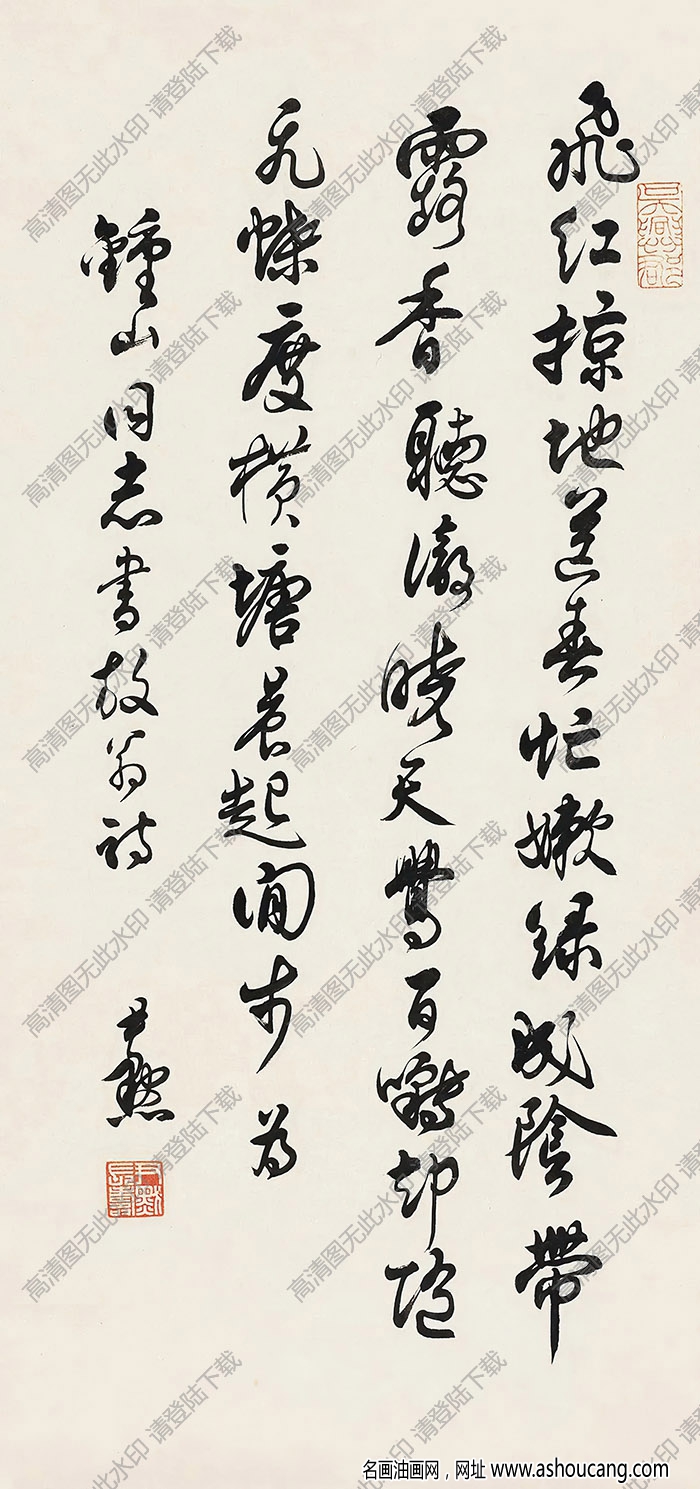 飛紅掠地送春忙嫩绿成陰帶
露香聽徹曉天鶯百囀却
蝶度橫塘晨起閒步 為
鐘山同志書放翁詩
尹默
高清图无此水印 请登陆下载
名画油画网，网址 www.ashoucang.com